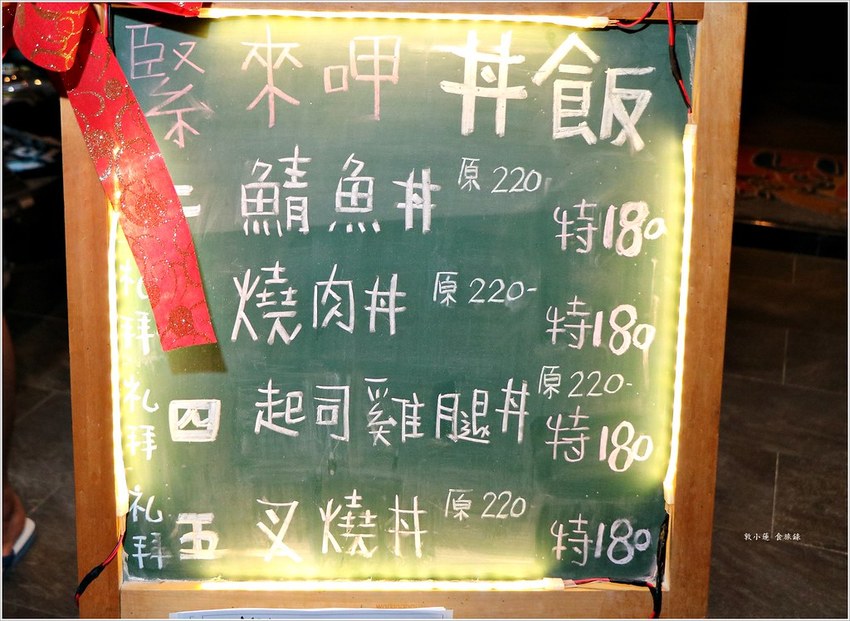 緊來呷 丼飯
二 鯖魚丼 原220 特180
礼拜 燒肉丼 原220- 特180
礼拜四 起司雞腿丼 原220- 特180
礼拜五 叉燒丼 原220 特180
敦小蓮·食旅錄